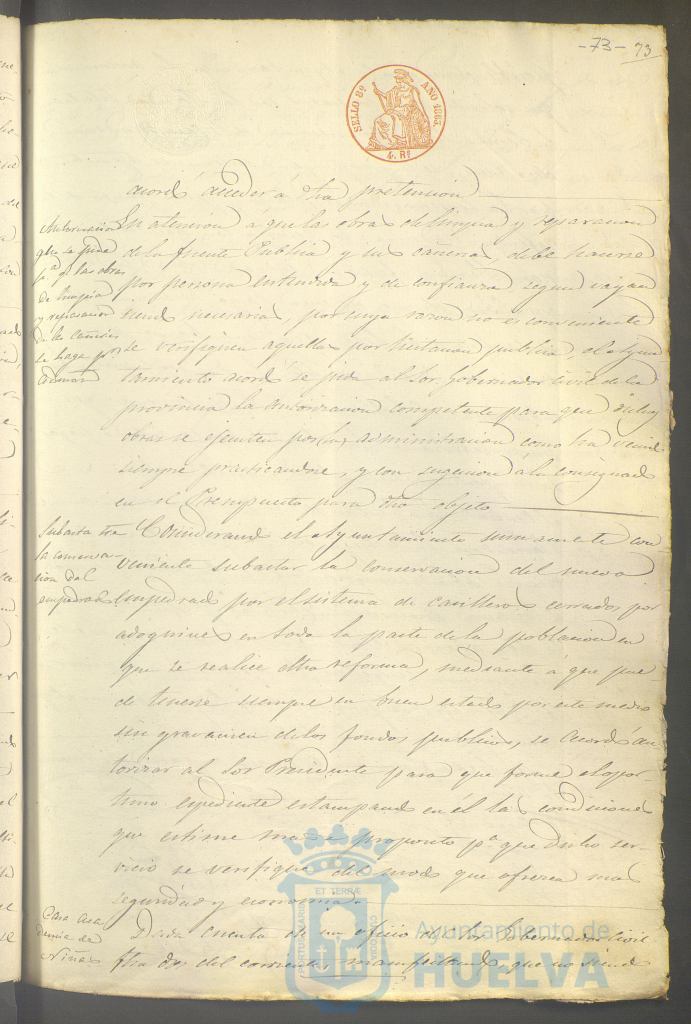 -73- 73
SELLO 8º AÑO 1863.
4. Rs
acordó acceder á dha pretension
Autorizacion
que se pida
pª q. las obras
de limpia
y reparacion
de las cañerias
se haga por
admon
En atencion a que las obras de limpia y reparacion
de la fuente Publica y sus cañerias debe hacerse
por persona entendida y de confianza segun vayan
siendo necesarias, por cuya razon no es conveniente
se verifiquen aquellas por licitacion publica, el Ayun
tamiento acordó se pida al Sor. Gobernador Civil de la
provincia la autorizacion competente para que dichas
obras se ejecuten por administracion como ha venido
siempre practicandose, y con sugecion á lo consignado
en el Presupuesto para dho objeto
Subasta
la conserva-
cion del
empedrado
Considerando el Ayuntamiento sumamente con
veniente subastar la conservacion del nuevo
empedrado por el sistema de casilleros cerrados por
adoquines en toda la parte de la poblacion en
que se realice dha reforma, mediante á que pue-
de tenerse siempre en buen estado por este medio
sin gravamen de los fondos publicos, se acordó au-
torizar al Sor Presidente para que forme el opor-
tuno espediente estampando en él las condiciones
que estime mas á proposito pª que dicho ser-
vicio se verifique del modo que ofrezca mas
seguridad y economia.
Casa Aca
demia de
Niñas
Dada cuenta de un oficio del Sor Gobernador Civil
fha dos del corriente, manifestando que no siendo
ET TERRÆ
PORTUS MARIS
CUSTODIA
Ayuntamiento de
HUELVA